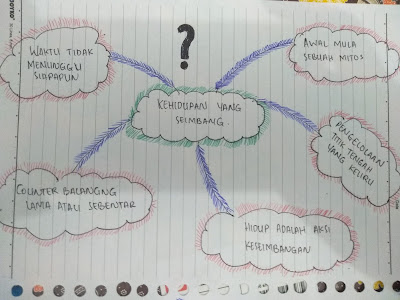 ?
WAKTU TIDAK
MENUNGGU
SIAPAPUN
AWAL MULA
SEBUAH MITOS
KEHIDUPAN YANG
SEIMBANG.
PENGELOLAAN
TITIK TENGAH
YANG KELIRU
COUNTER BALANGNG
LAMA ATAU SEBENTAR
HIDUP ADALAH AKSI
KESEIMBANGAN